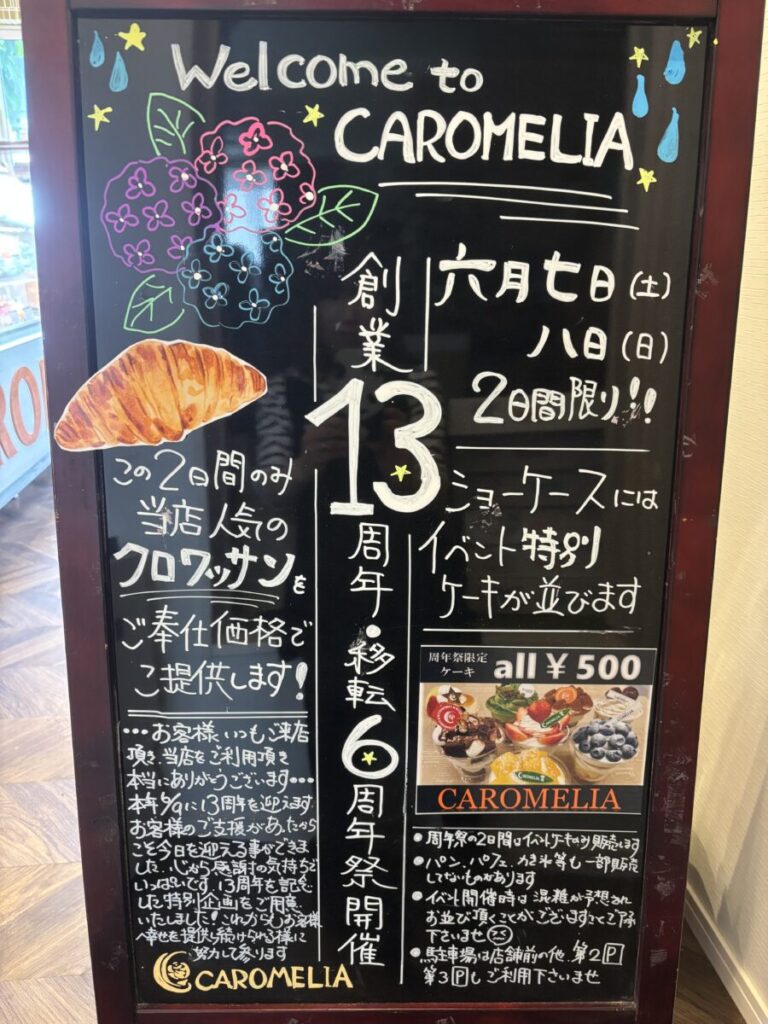 Welcome to
CAROMELIA
六月七日(土)
八日(日)
2日間限り!!
創業
13
周年・移転
6
周年祭開催
ショーケースには
イベント特別
ケーキが並びます
この2日間のみ
当店人気の
クロワッサンを
ご奉仕価格で
ご提供します!
周年祭限定
ケーキ all ¥500
CAROMELIA
…お客様、いつもご来店
頂き、当店をご利用頂き
本当にありがうございます…
本年6/9に13周年を迎えます
お客様のご支援があったから
こそ今日を迎える事ができま
した、心から感謝の気持ちで
いっぱいです。13周年を記念
した特別企画をご用意
いたしました!これからもお客様
へ幸せを提供し続けられる様に
努力して参ります
CAROMELIA
●周年祭の2日間はイベントケーキのみ販売します
●パン、パフェ、かき氷等も一部販売
してないものがあります
●イベント開催時は混雑が予想され
お並び頂くことがございますことご了承
下さいませ
●駐車場は店舗前の他、第2P
第3Pもご利用下さいませ